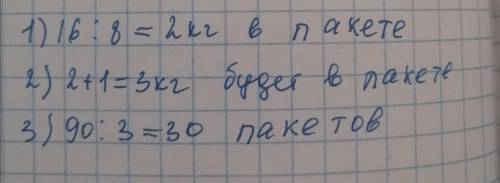 1) 16 : 8 = 2кг в пакете
2) 2+1=3кг будет в пакете
3) 90 : 3 = 30 пакетов